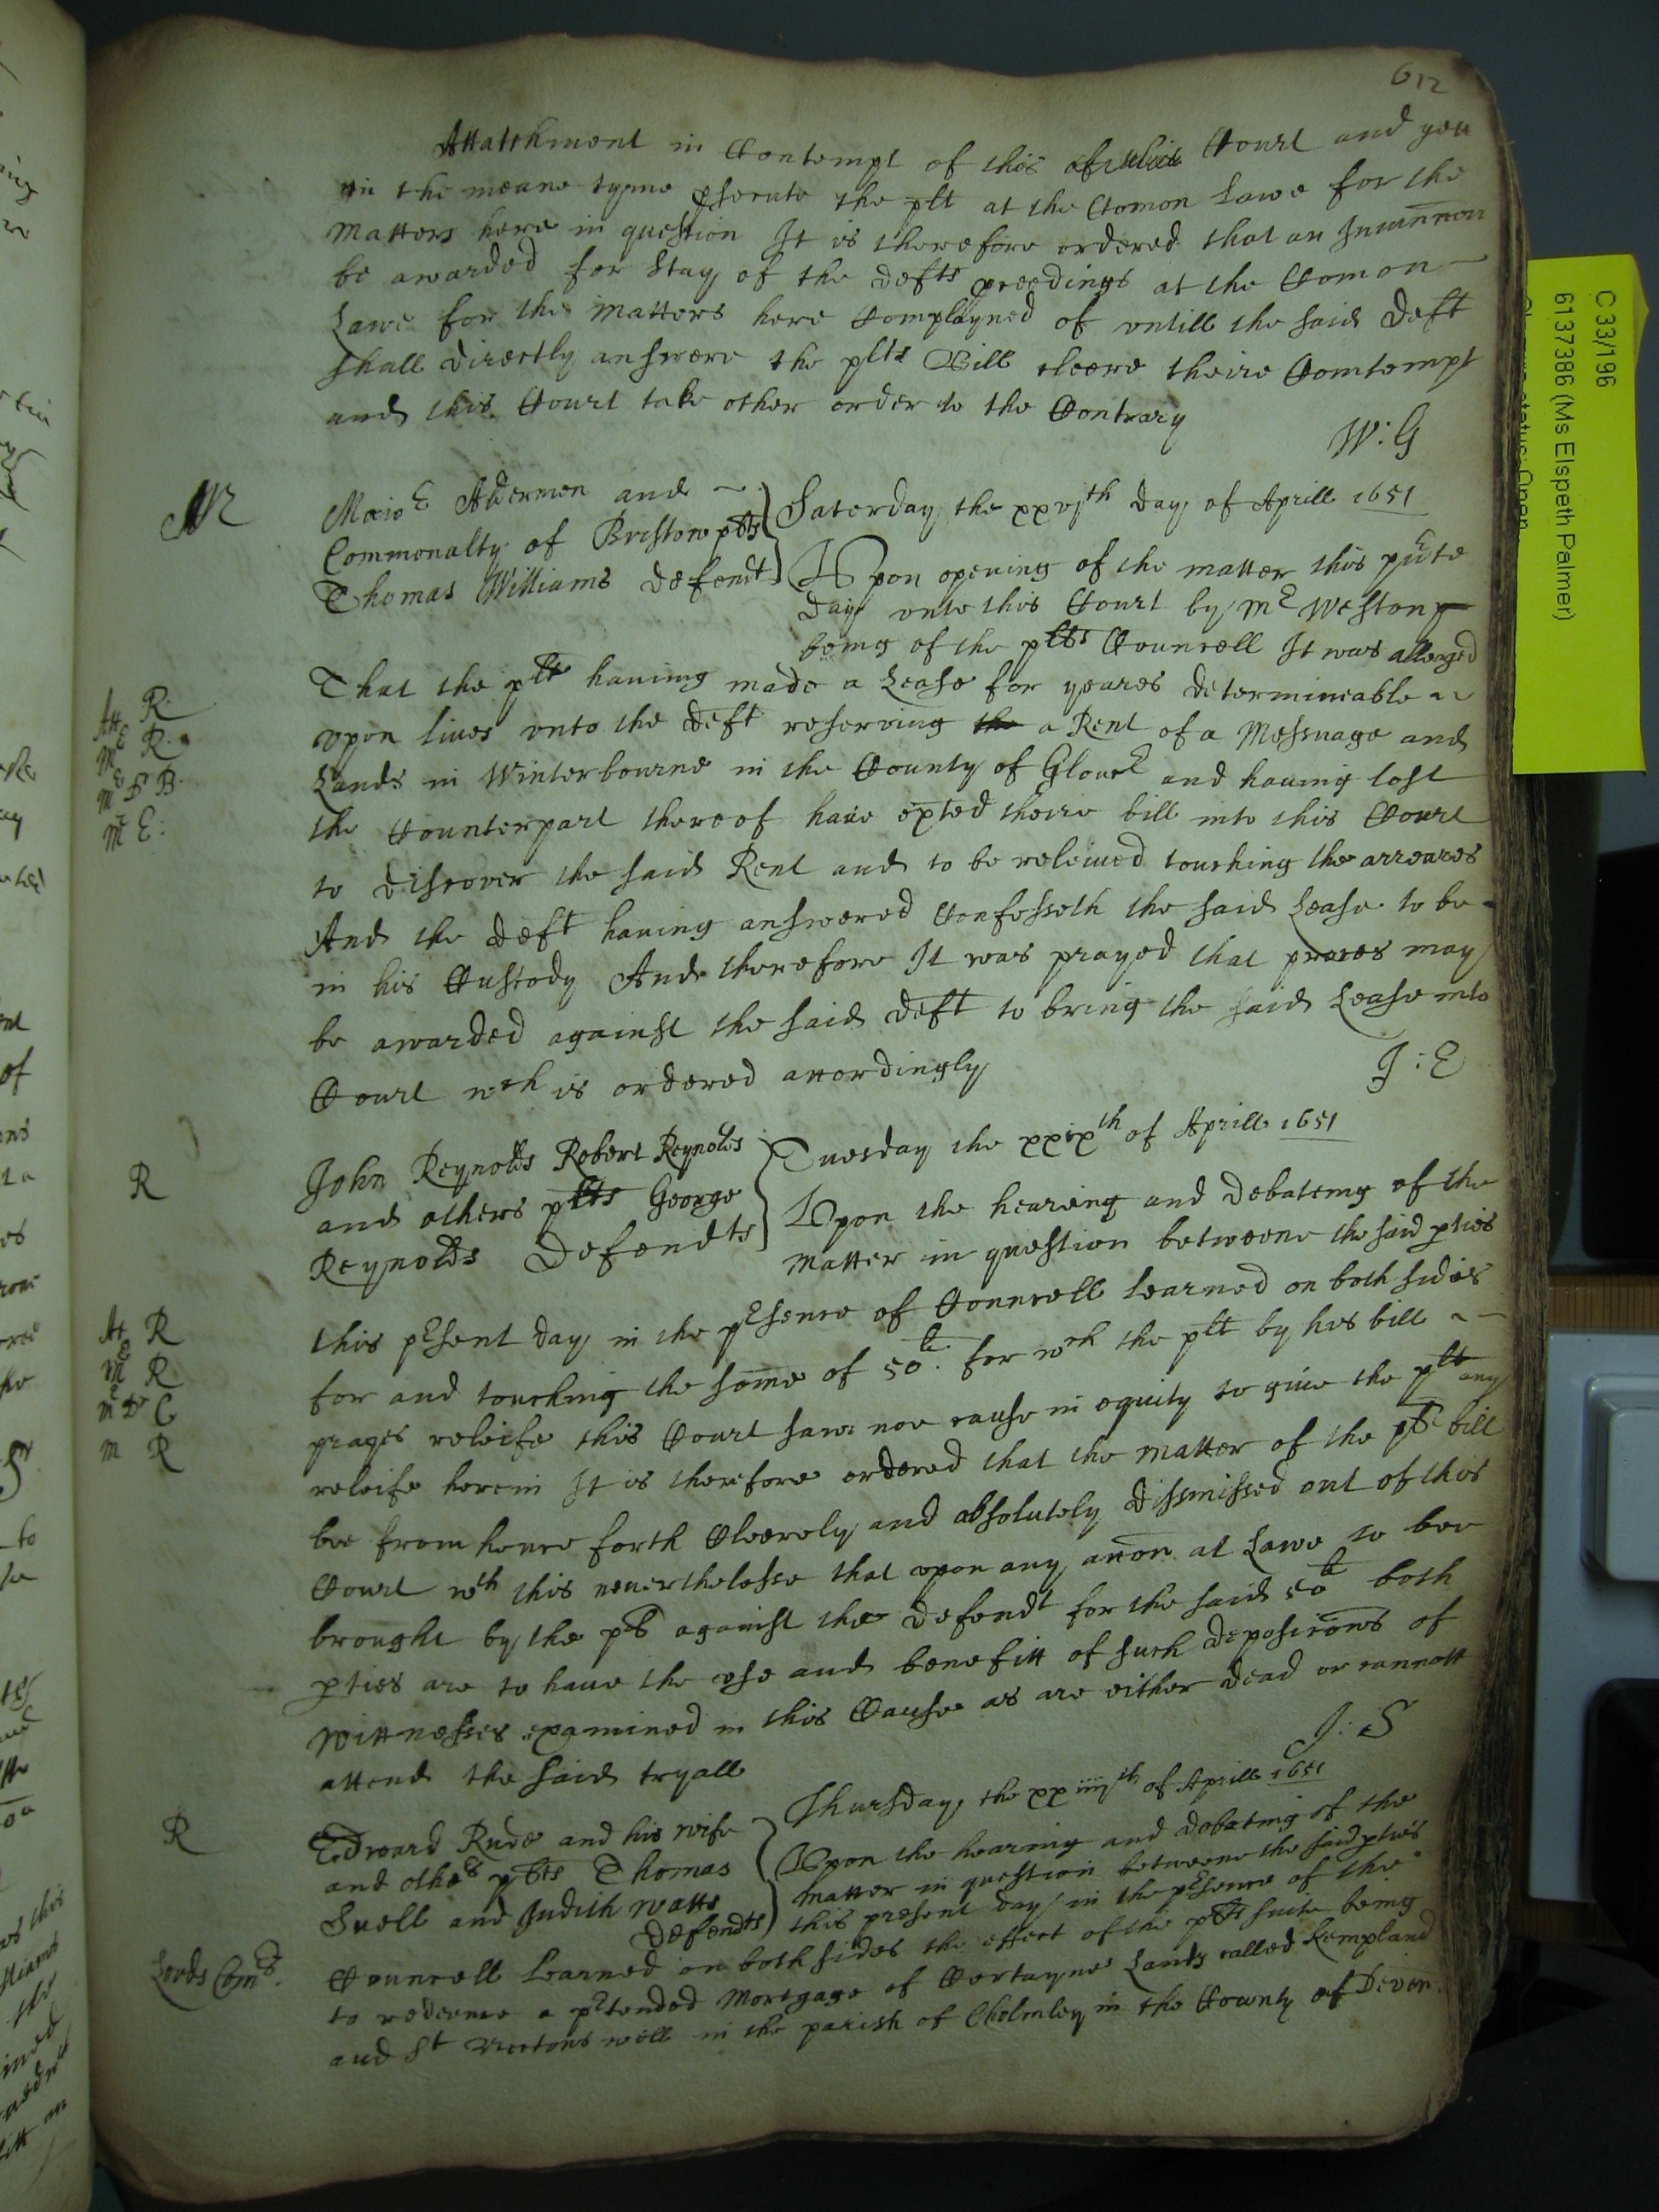 612
Attatchment in Contempt of this Court and yett
in the meane tyme psecute the plt at the Comon Lawe for the
matters here in question It is therefore ordered that an Iniunccon
be awarded for stay of the defts pceedings at the Comon
Lawe for the matters here Complayned of vntill the said deft
shall directly answere the plts Bill cleere theire Comtempt
and this Court take other order to the Contrary
W: G
Maior Aldermen and
Commonalty of Bristow plts
Thomas Williams defendt
Saterday the xxvjth day of Aprill 1651
Vpon opening of the matter this pnte
day vnto this Court by Mr Weston
being of the plts Councell It was alleaged
That the plts haueing made a Lease for yeares determineable
vpon liues vnto the deft reserveing the a Rent of a Messuage and
Lands in Winterbourne in the County of Gloucr and haueing lost
the Counterpart thereof haue exted theire bill into this Court
to discover the said Rent and to be releiued touching the arreares
And the deft haueing answered Confesseth the said Lease to be
in his Custody And therefore It was prayed that proces may
be awarded against the said deft to bring the said Lease into
Court wch is ordered accordingly
J: E
Att R
Mr R
Mr Dr B
Mr E:
John Reynolds Robert Reynolds
and others plts George
Reynolds Defendts
Tuesday the xxixth of Aprill 1651
R
Vpon the heareing and debateing of the
matter in question betweene the said pties
this pesent day in the pesence of Councell learned on both sides
for and touching the some of 50li for wch the plt by his bill
prayes releife this Court saw noe cause in equity to giue the plts any
releife herein It is therefore ordered that the matter of the plts bill
bee from henceforth Cleerely and absolutely dissmissed out of this
Court wth this neuerthelesse that vpon any accon at Lawe to bee
brought by the plts against the defendt for the said 50li both
pties are to haue the vse and benefitt of such deposicons of
wittnesses examined in this Cause as are either dead or cannott
attend the said tryall
J: S
At R
Mr R
Mr Dr C
M R
R
Edward Rude and his wife
and others plts Thomas
Snell and Judith Watts
Defendts
Thursday the xxiiijth of Aprill 1651
Vpon the hearing and debateing of the
matter in question betweene the said pties
this present day in the pesence of the
Lords Comrs.
Councell learned on both sides the effect of the plts suite being
to redeeme a petended Mortgage of Certayne Lands called Kempland
and St well in the parish of Cholmley in the County of Devon
C 33/196
6137386 (Ms Elspeth Palmer)